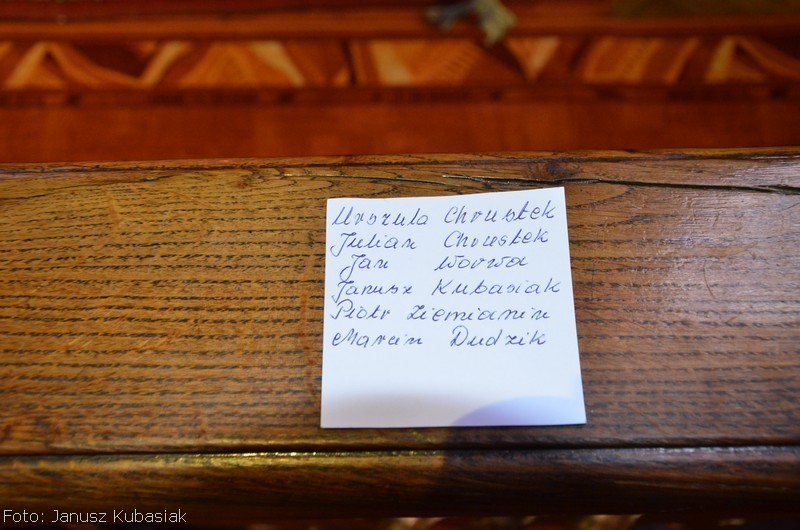 Urszula Chrustek
Julian Chrustek
Jan Worwa
Janusz Kubasiak
Piotr Ziemianin
Marcin Dudzik
Foto: Janusz Kubasiak